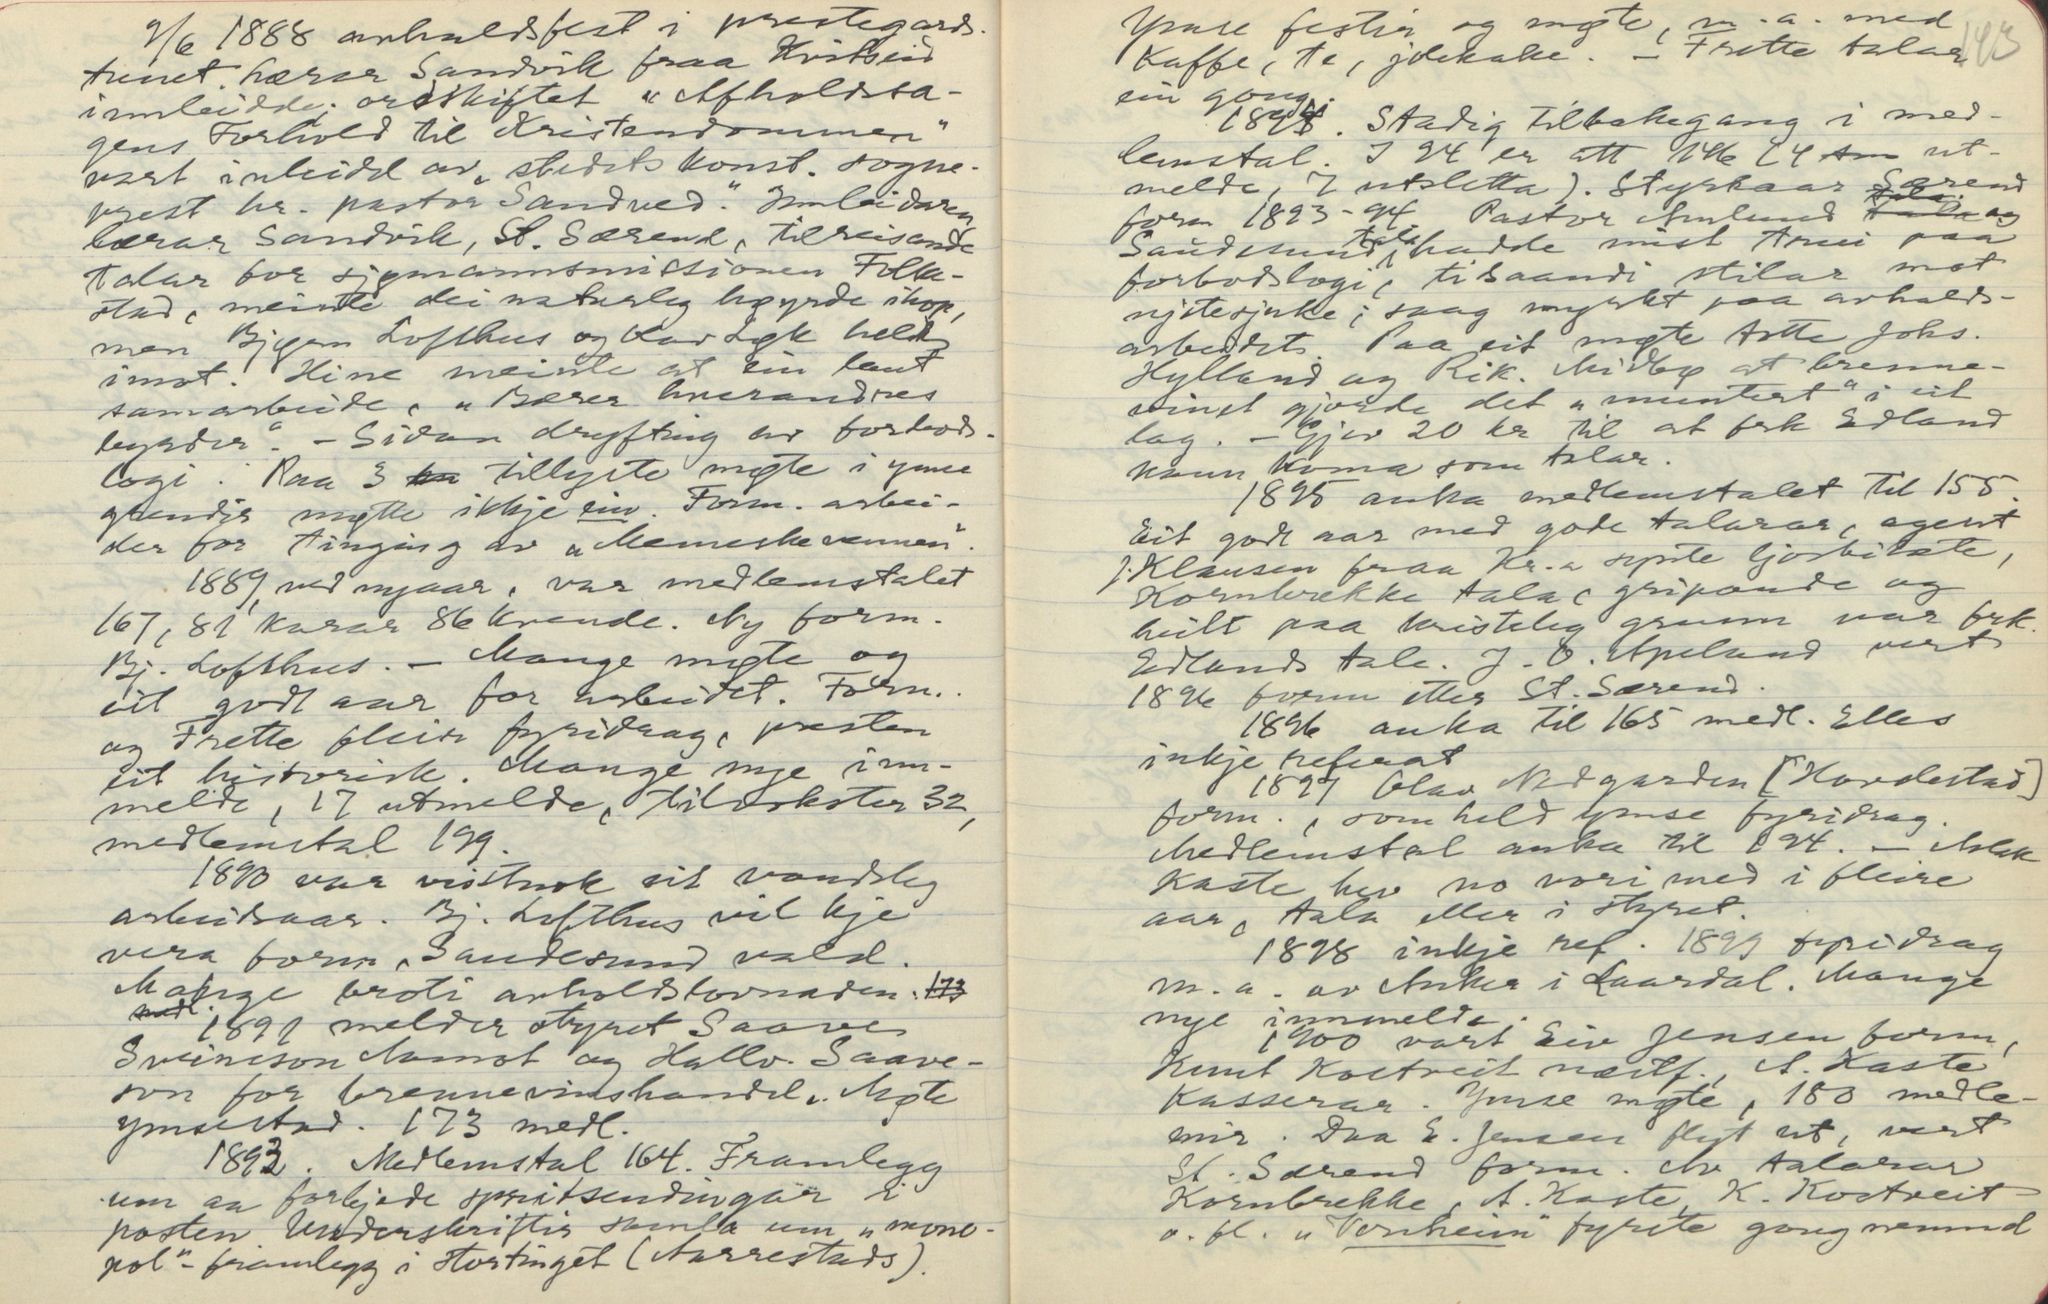 9/6 1888 avhaldsfest i prestegards-
tunet. Lærar Sandvik fraa Kviteseid
innleidde; ordskiftet „Afholdssa-
gens Forhold til Kristendommen"
vart inleidd av „stedets konst. sogne-
prest hr. pastor Sandved." Innleidaren,
lærar Sandvik, St. Særend, tilreisande
talar for sjømannsmissionen Folke-
stad, meinte dei naturleg høyrde ihop,
men Bjørn Lofthus og Olav Løk held
imot. Hine meinte at ein laut
samarbeide, „Bærer hverandres
byrder". – Sidan drøfting av forbods-
logi. Paa 3 tillyste møte i ymse
grender møtte ikkje ein. Form. arbei-
der for tinging av „Menneskevennen".
1889, ved nyaar, var medlemstalet
167, 81 karar 86 kvende. Ny form.
Bj. Lofthus. – Mange møte og
eit godt aar for arbeidet. Form.
og Frette fleire fyridrag, presten
eit historisk. Mange nye inn-
melde, 17 utmelde, tilvokster 32,
medlemstal 199.
1890 var visstnok eit vandsleg
arbeidsaar. Bj. Lofthus vil kje
vera form, Saudesund vald.
Mange broti avholdslovnaden. 173
medl.
1891 melder styret Saave
Sveinsson Aamot og Hallv. Saave-
son for brennevinshandel. Møte
ymsestad. 173 medl.
1892. Medlemstal 164. Framlegg
um aa forbjode spritsendingar i
posten. Underskrifter samla um „mono-
pol"-framlegg i Stortinget (Aarrestads).
143
Ymse festir og møte, m.a. med
kaffe, te, julekake. – Frette talar
ein gong.
1894. Stadig tilbakegang i med-
lemstal. I 94 er att 146 (4 ut-
melde, 7 utsletta). Styrkaar Særend
form 1893-94. Pastor Amlund og
Saudesund tala, hadde mist trui paa
forbodslogi, tilraandi stilar mot
nytesjuke; saag myrkt paa avhalds-
arbeidet. Paa eit møte tette Johs.
Hylland og Rik. Midbø at brenne-
vinet gjorde det „muntert" i eit
lag. – Gjev 20 kr til at frk Edland
kann koma som talar.
1895 auka medlemstalet til 155.
Eit godt aar med gode talarar, agent
J. Klausen fraa Kr.a synte ljosbilæte,
Kornbrekke tala, gripande og
heilt paa kristeleg grunn var frk.
Edlands tale. J. O. Apeland vert
1896 form etter St. Særend.
1896 auka til 165 medl. Elles
inkje referat
1897 Olav Nedgarden [Hovdestad]
form., som held ymse fyridrag.
Medlemstal auka til 194. – Aslak
Kaste hev no vori med i fleire
aar, tala eller i styret.
1898 inkje ref. 1899 fyridrag
m.a. av Anker i Laardal. Mange
nye innmelde.
1900 vart Eiv Jensen form,
Knut Kostveit næstf., A. Kaste
kasserar. Ymse møte, 180 medle-
mir. Daa E. Jensen flyt ut, vert
St. Særend form. Av talarar
Kornbrekke, A. Kaste, K. Kostveit
o. fl. „Vonheim" fyrste gong nemnd